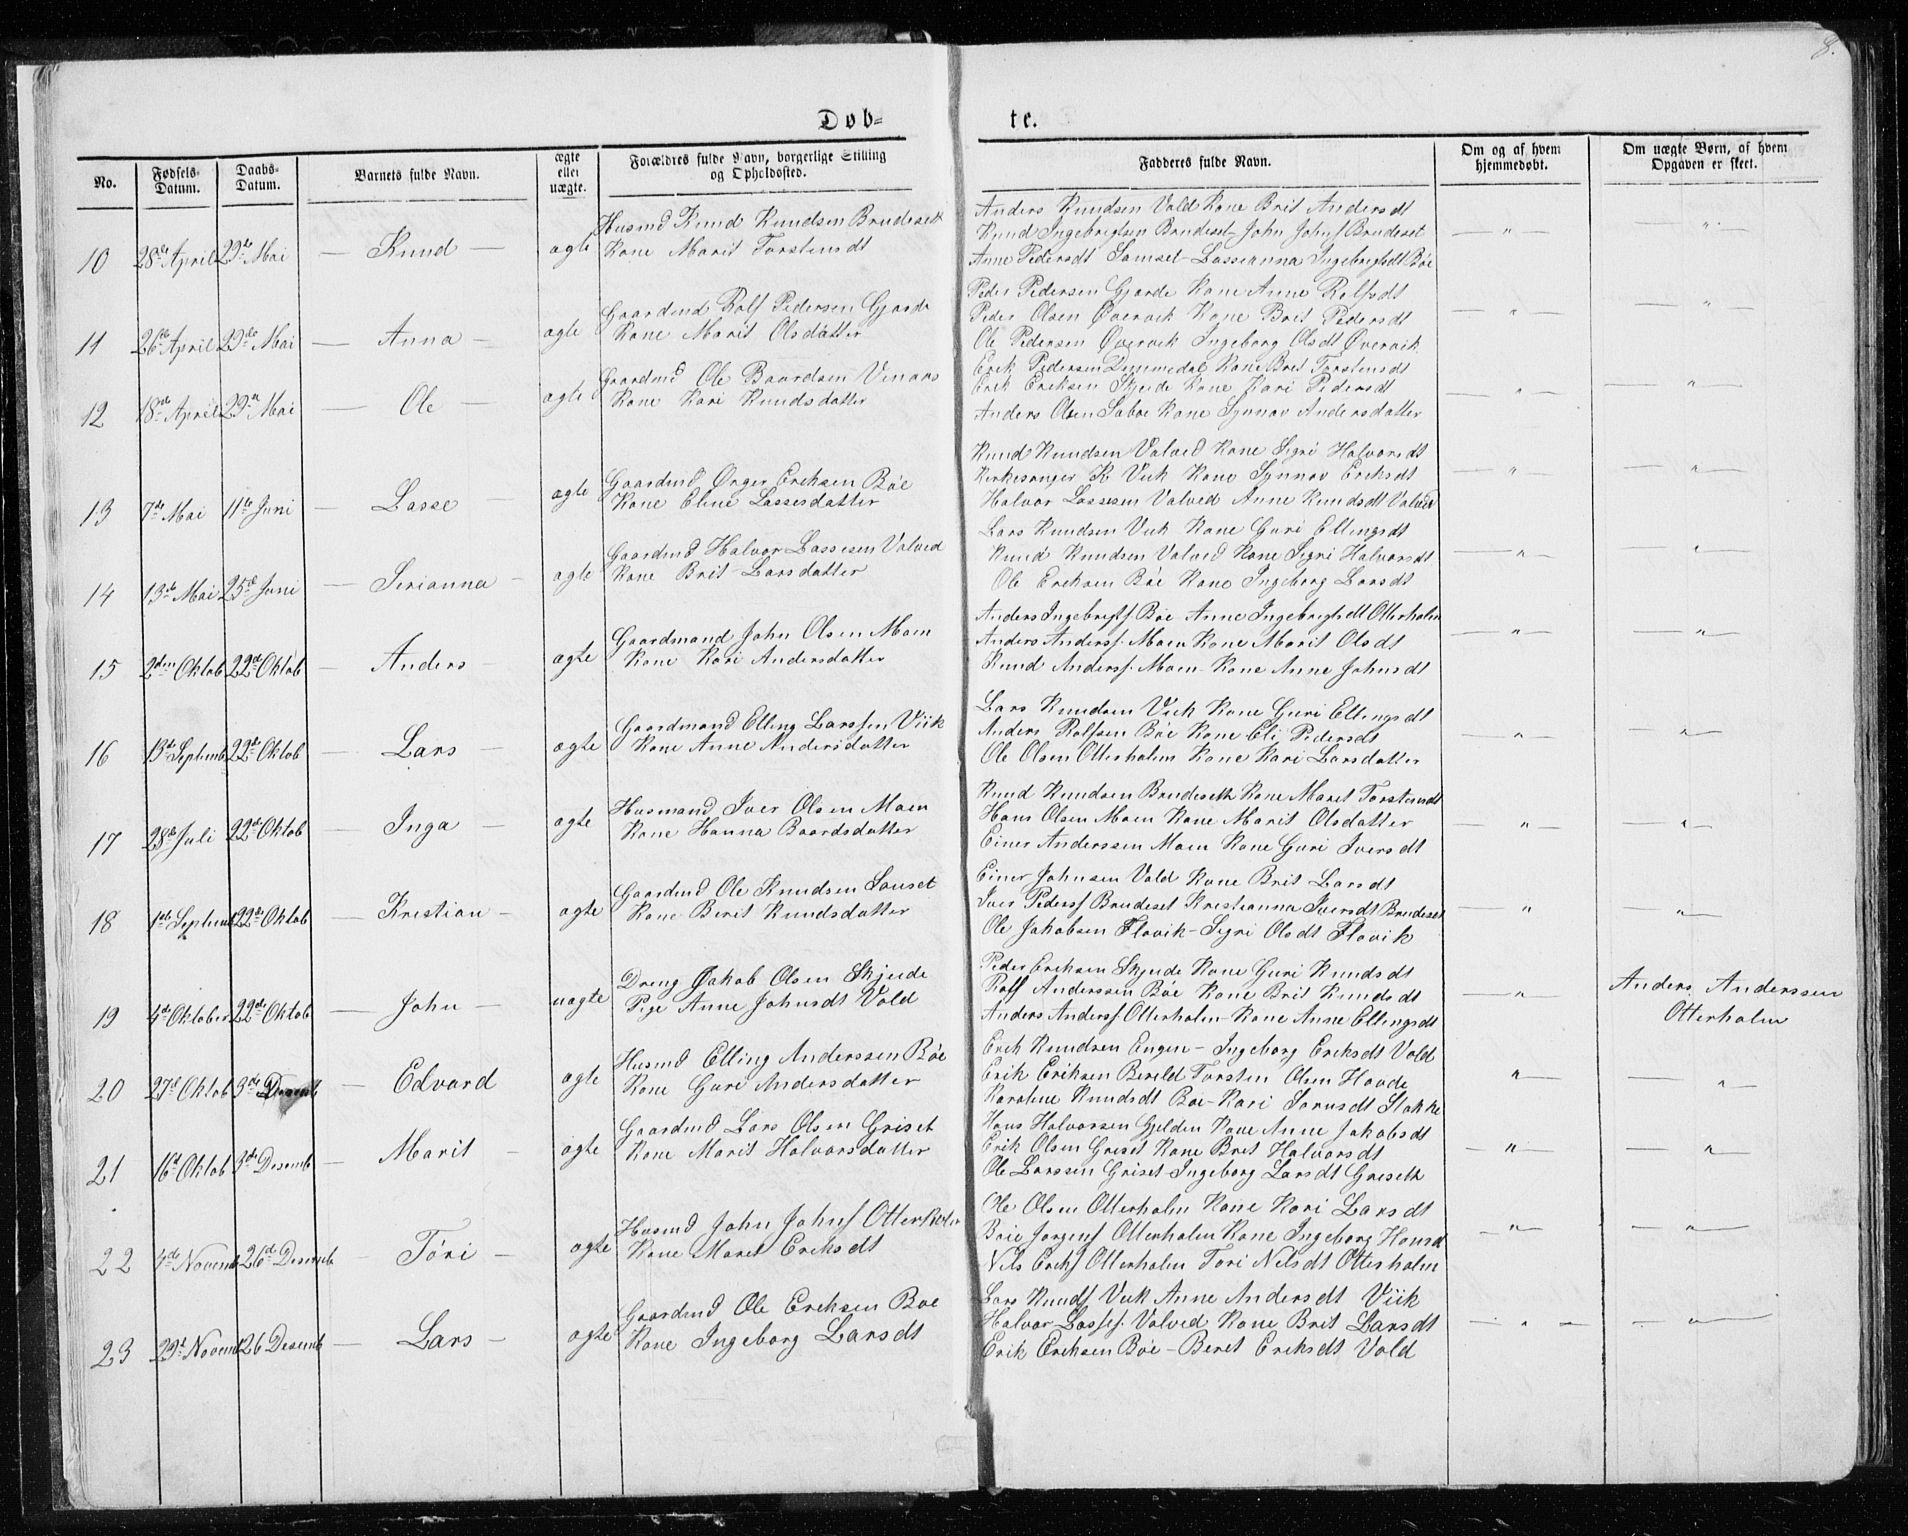 8.
Døb-
te.
No.
Fødsels-Datum.
Daabs-Datum.
Barnets fulde Navn.
ægte eller uægte.
Forældres fulde Navn, borgerlige Stilling og Opholdssted.
Fadderes fulde Navn.
Om og af hvem hjemmedøbt.
Om uægte Børn, af hvem Opgaven er skeet.
10 28de April 29de Mai — Knud — ægte
Husmd Knud Knudsen Brudeseth
Kone Marit Torstensdt
Anders Knudsen Vold Kone Brit Andersdt
Knud Ingebrigtsen Brudeset John Johnf Brudeset
Anne Pedersdt Samset - Lassianna Ingebrigtsdt Böe
— " — — " —
11 26de April 29de Mai — Anna — ægte
Gaardmd Rolf Pedersen Gjørde
Kone Marit Olsdatter
Peder Pedersen Gjørde Kone Anne Rolfsdt
Peder Olsen Øvervik Kone Brit Pedersdt
Ole Pedersen Øvervik Ingeborg Olsdt Øvervik
— " — — " —
12 18de April 29de Mai — Ole — ægte
Gaardmd Ole Baardsen Venaas
Kone Kari Knudsdatter
Erik Pedersen Dummedal Kone Brit Torstensdt
Erik Eriksen Skjeide Kone Kari Pedersdt
Anders Olsen Sæbøe Kone Synnøv Andersdatter
— " — — " —
13 7de Mai 11te Juni — Lasse — ægte
Gaardmd Ørger Eriksen Böe
Kone Eline Lassesdatter
Knud Knudsen Valved Kone Sigri Halvorsdt
Kirkesanger K. Viik Kone Synnøv Eriksdt
Halvor Lassesen Valved Anne Knudsdt Valved
— " — — " —
14 13de Mai 25de Juni — Serianna — ægte
Gaardmd Halvor Lassesen Valved
Kone Brit Larsdatter
Lars Knudsen Viik Kone Guri Ellingsdt
Knud Knudsen Valved Kone Sigri Halvorsdt
Ole Eriksen Böe Kone Ingeborg Larsdt
— " — "
15 2den Oktob 22de Oktob — Anders — ægte
Gaardmand John Olsen Moen
Kone Kari Andersdatter
Anders Ingebrigtf Böe Anne Ingebrigtsdt Otterholm
Anders Andersf. Moen Kone Marit Olsdt
Knud Andersf. Moen - Kone Anne Johnsdt
— " — — " —
16 13de Septemb 22de Oktob — Lars — ægte
Gaardmand Elling Larssen Viik
Kone Anne Andersdatter
Lars Knudsen Viik Kone Guri Ellingsdt
Anders Rolfsen Böe Kone Eli Pedersdt
Ole Olsen Otterholm Kone Kari Larsdatter
— " — — " —
17 28de Juli 22de Oktob — Inga — ægte
Husmand Iver Olsen Moen
Kone Hanna Baardsdatter
Knud Knudsen Brudeseth Kone Marit Torstensdt
Hans Olsen Moen Kone Marit Olsdatter
Einer Anderssen Moen Kone Guri Iversdt
— " — — " —
18 1ste Septemb 22de Oktob — Kristian — ægte
Gaardmd Ole Knudsen Souset
Kone Berit Knudsdatter
Einer Johnsen Vold Kone Brit Larsdt
Iver Pedersf Brudeset Kristianna Iversdt Brudeset
Ole Jakobsen Flovik - Sigri Olsdt Flovik
— " — — " —
19 4de Oktober 22de Oktob — John — uægte
Dreng Jakob Olsen Skjeide
Pige Anne Johnsdt Vold
Peder Eriksen Skjeide Kone Guri Knudsdt
Rolf Anderssen Böe Kone Brit Knudsdt
Anders Andersf Otterholm - Kone Anne Ellingsdt
— " — Anders Anderssen
Otterholm
20 27de Oktob 3de Desemb — Edvard — ægte
Husmd Elling Anderssen Böe
Kone Guri Andersdatter
Erik Knudsen Engen - Ingeborg Eriksdt Vold
Erik Eriksen Bereld Torsten Olsen Hovde
Karoline Knudsdt Böe - Kari Sørensdt Stokke
— " — — " —
21 16de Oktob 3de Desemb — Marit — ægte
Gaardmd Lars Olsen Griset
Kone Marit Halvorsdatter
Hans Halvorsen Gjelden Kone Anne Jakobsdt
Erik Olsen Griset Kone Brit Halvorsdt
Ole Larssen Griset Ingeborg Larsdt Griseth
— " — — " —
22 4de Novemb 26de Desemb — Töri — ægte
Husmd John Johnf Otterholm
Kone Marit Eriksdt
Ole Olsen Otterholm Kone Kari Larsdt
Brie Jørgenf Otterholm Kone Ingeborg Hansdt
Nils Erikf Otterholm Töri Nilsdt Otterholm
— " — — " —
23 29de Novemb 26 Desemb — Lars — ægte
Gaardmd Ole Eriksen Böe
Kone Ingeborg Larsdt
Lars Knudf Viik Anne Andersdt Viik
Halvor Lassef. Valved Kone Brit Larsdt
Erik Eriksen Böe - Beret Eriksdt Vold
— " — — " —